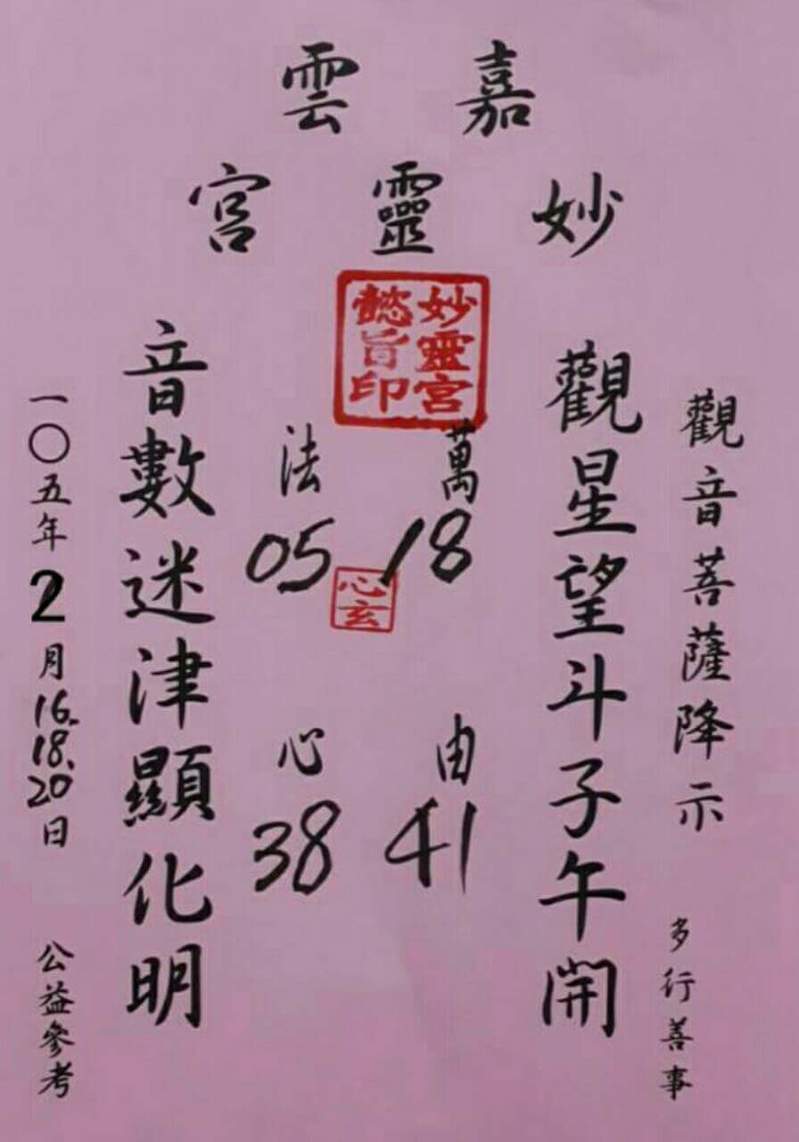 嘉雲
妙靈宮
妙靈宮
懿旨印
觀音菩薩降示
多行善事
觀星望斗子午開
萬法
18 05
心玄
由心
41 38
音數迷津顯化明
一〇五年2月16.18.20日
公益參考